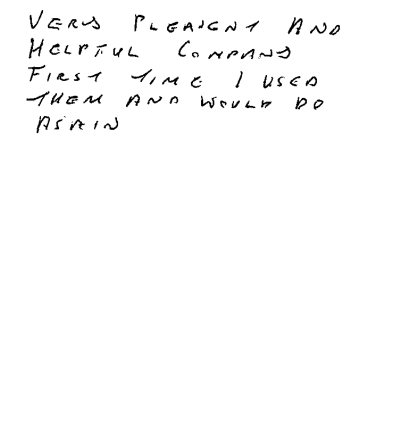 VERY PLEASENT AND
HELPFUL COMPANY
FIRST TIME I USED
THEM AND WOULD DO
AGAIN